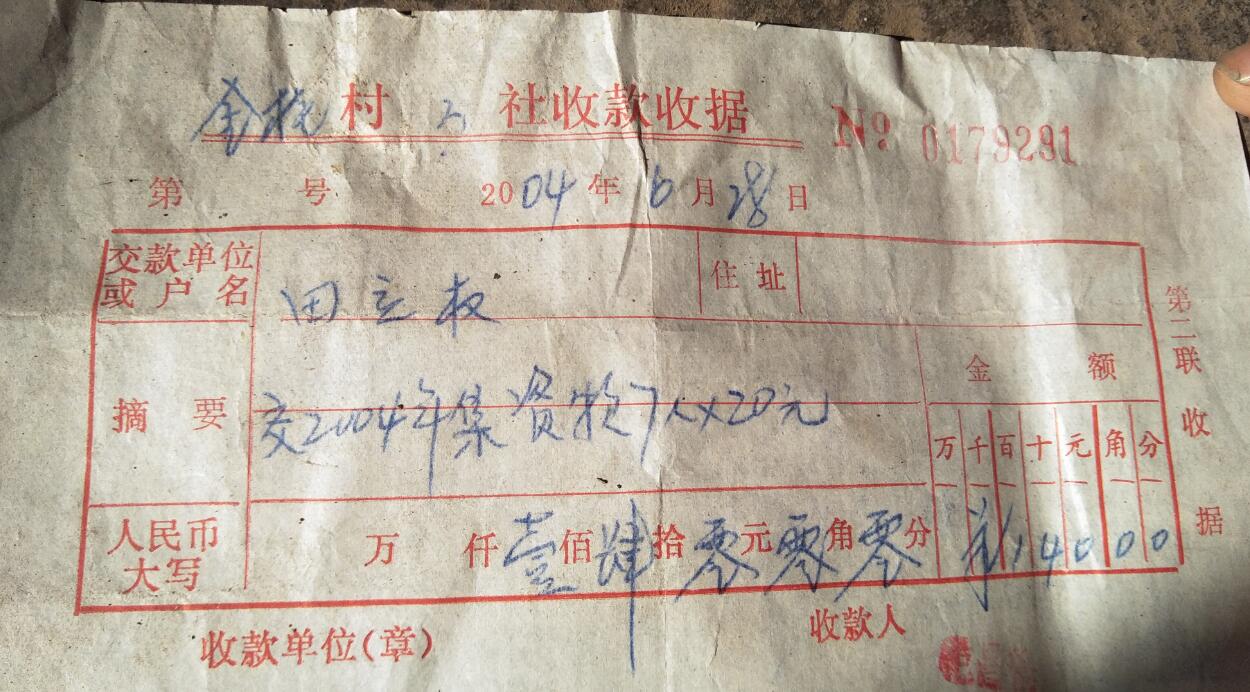 村 社收款收据 № 0179291
第 号 2004年6月28日
交款单位或户名 田立权 住址
摘要 交2004年集资款7人x20元
金额
万 千 百 十 元 角 分
人民币大写 万 仟 壹佰肆拾零元零角零分 14000
收款单位(章) 收款人
第二联 收据